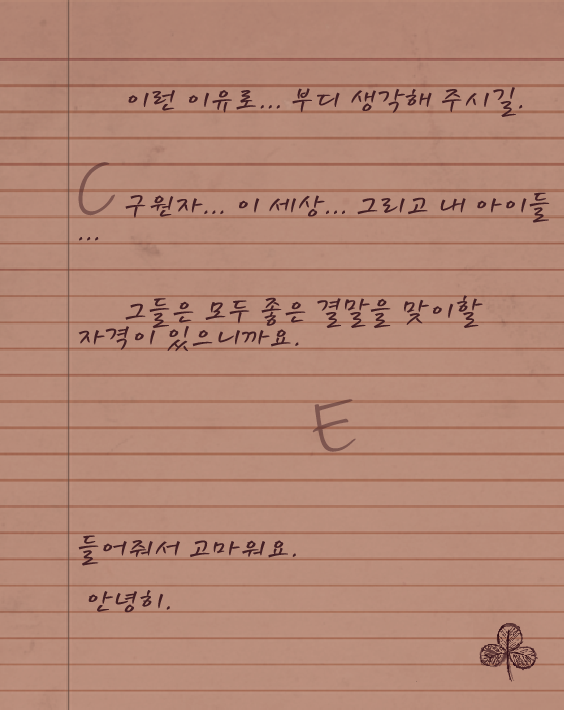 이런 이유로... 부디 생각해 주시길.
C
구원자... 이 세상... 그리고 내 아이들
...
그들은 모두 좋은 결말을 맞이할
자격이 있으니까요.
E
들어줘서 고마워요.
안녕히.